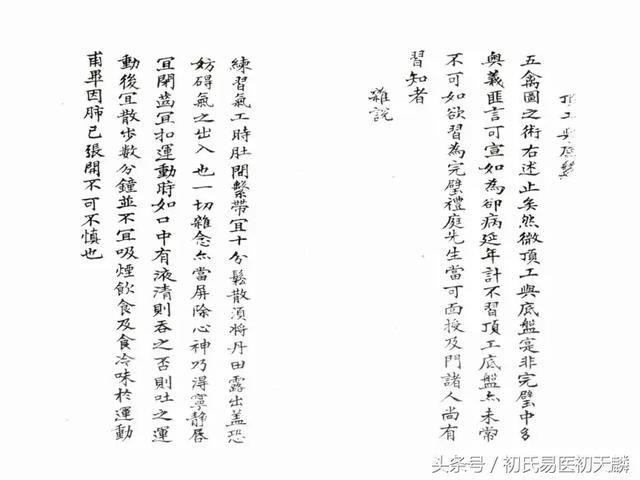 頂工與底盤
五禽圖之術右述止矣然微頂工與底盤寔非完璧中多
奧義匪言可宣如為卻病延年計不習頂工底盤亦未常
不可如欲習為完璧禮庭先生當可面授及門諸人尚有
習知者
雜說
練習氣工時肚間繫帶宜十分鬆散須將丹田露出蓋恐
妨碍氣之出入也一切雜念亦當屏除心神乃得寧靜唇
宜閉齒宜扣運動時如口中有液清則吞之否則吐之運
動後宜散步数分鐘並不宜吸煙飲食及食冷味於運動
甫畢因肺已張開不可不慎也
头条号／初氏易医初天麟